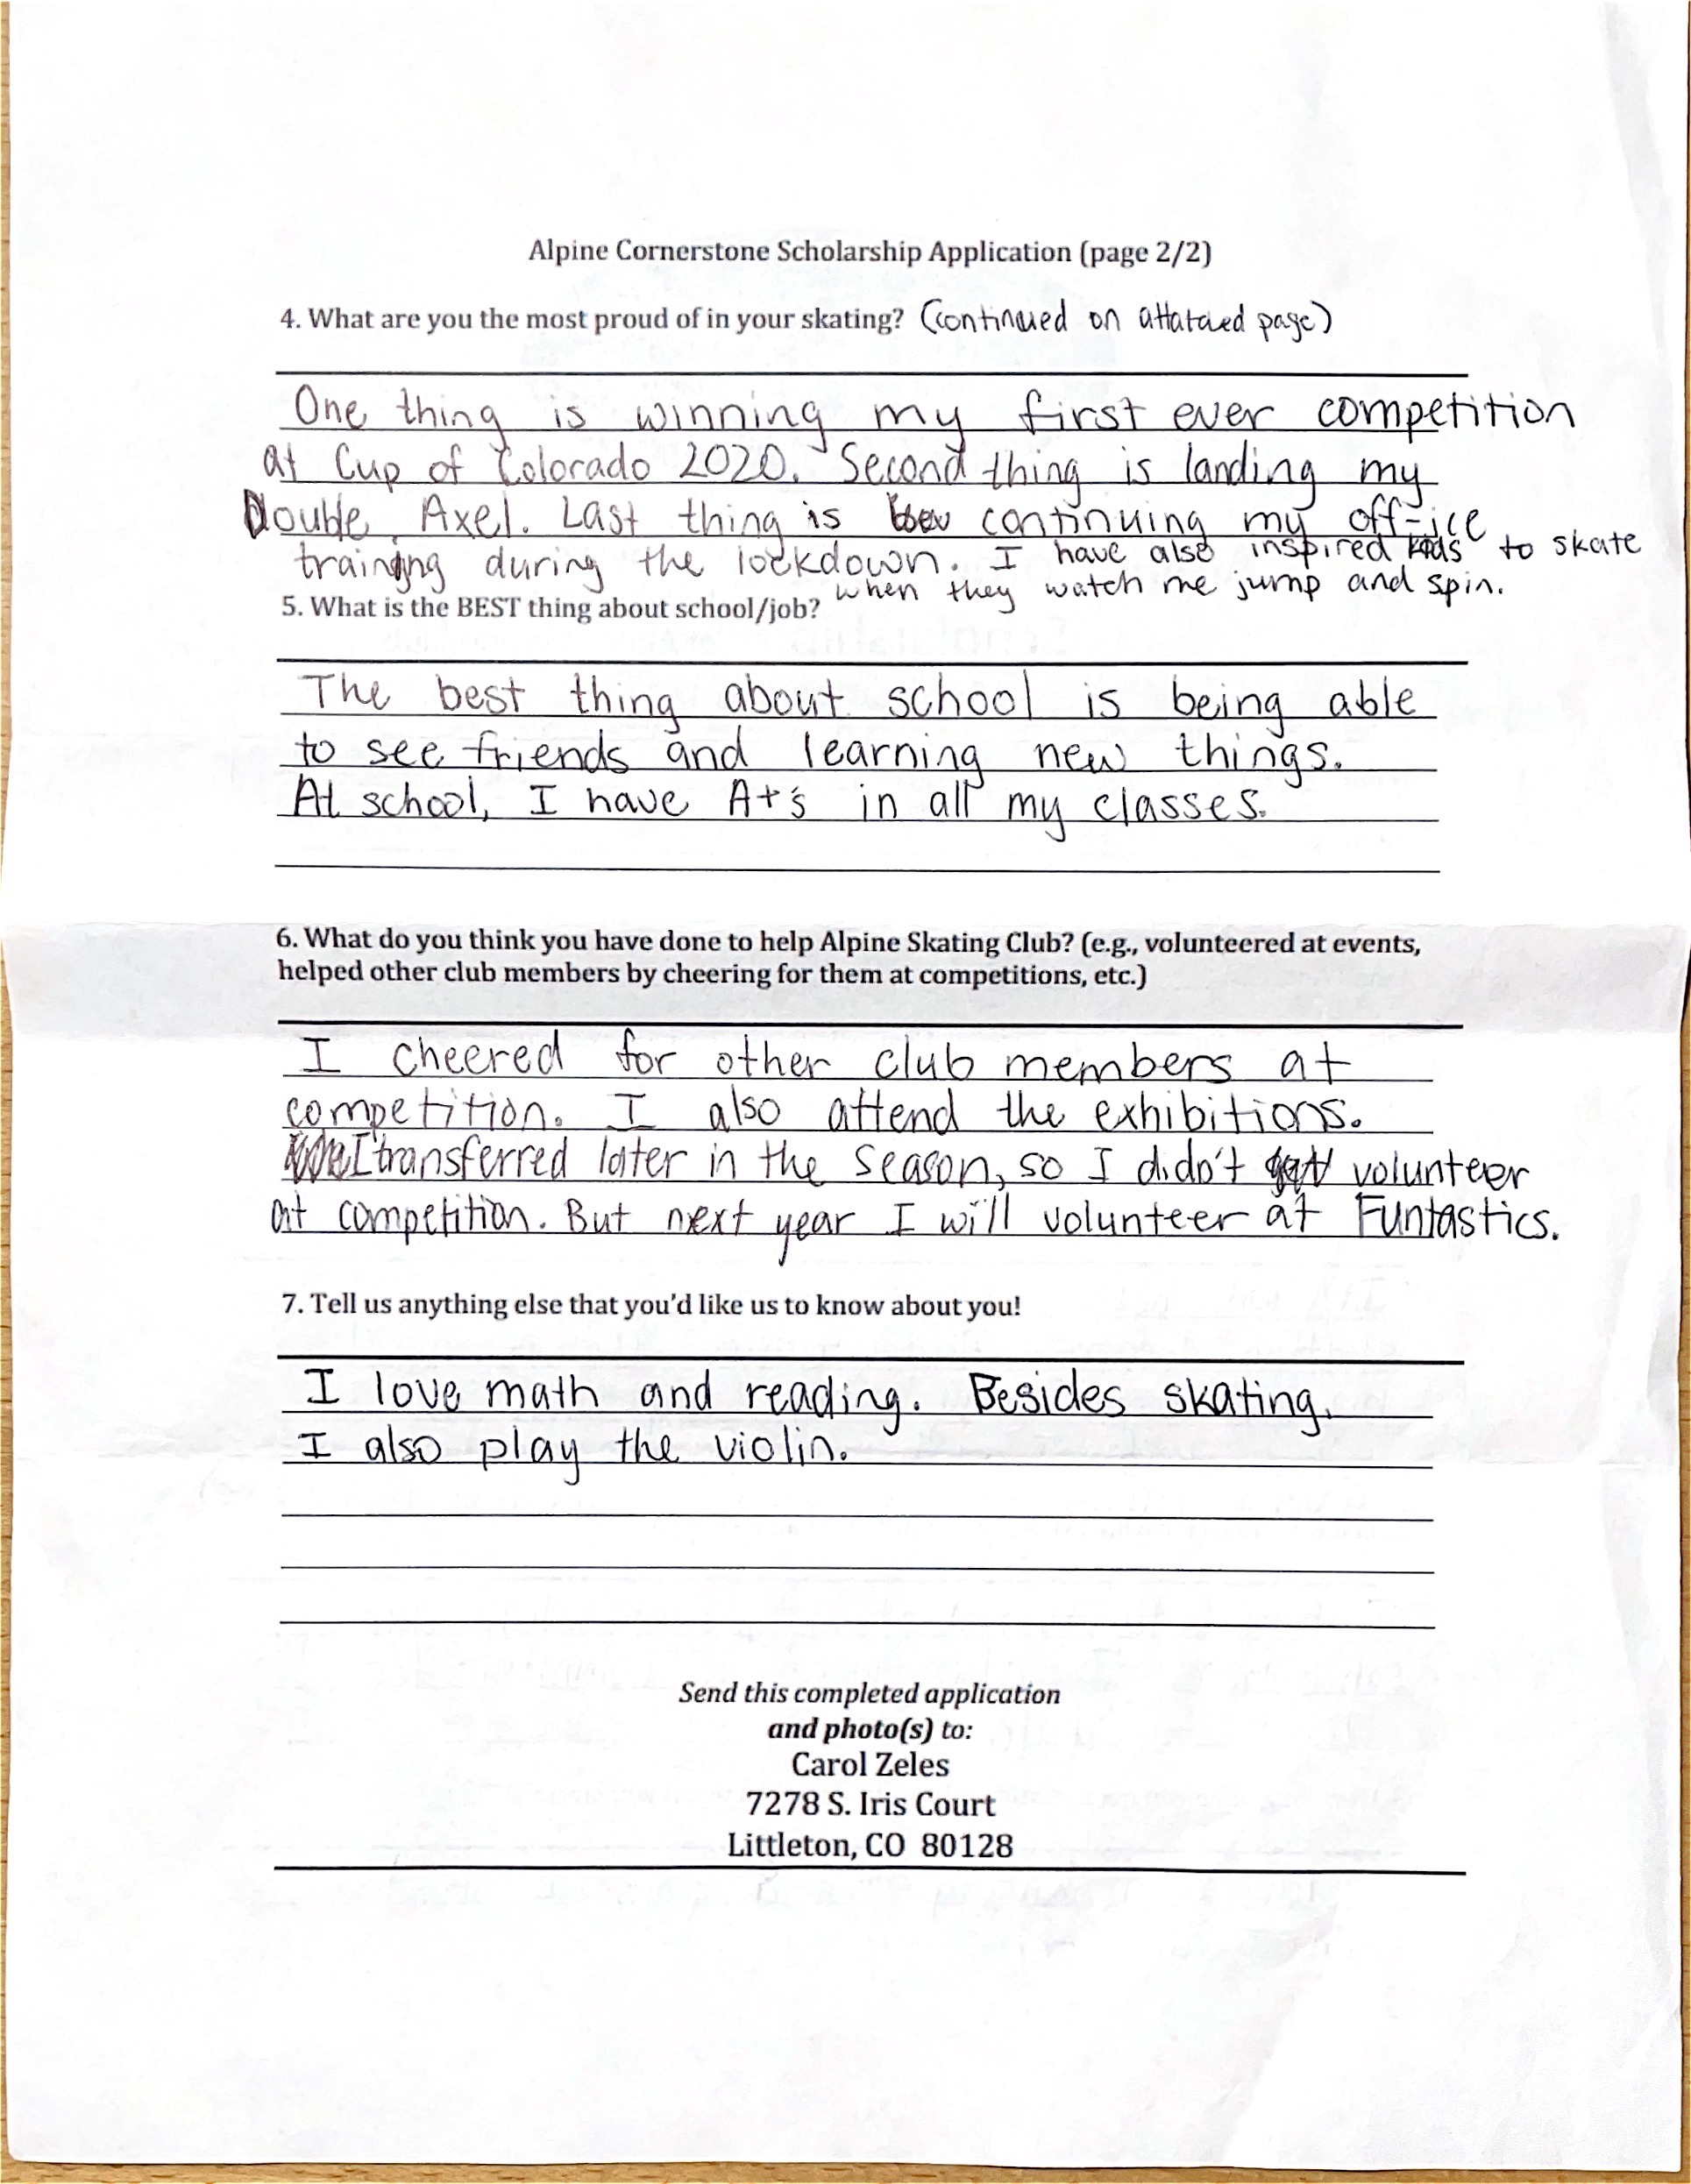 Alpine Cornerstone Scholarship Application (page 2/2)
4. What are you the most proud of in your skating? (continued on attatched page)
One thing is winning my first ever competition
at Cup of Colorado 2020. Second thing is landing my
Double Axel. Last thing is continuing my off-ice
training during the lockdown. I have also inspired kids to skate
when they watch me jump and spin.
5. What is the BEST thing about school/job?
The best thing about school is being able
to see friends and learning new things.
At school, I have A+'s in all my classes.
6. What do you think you have done to help Alpine Skating Club? (e.g., volunteered at events,
helped other club members by cheering for them at competitions, etc.)
I cheered for other club members at
competition. I also attend the exhibitions.
I transferred later in the season, so I didn't volunteer
at competition. But next year I will volunteer at Funtastics.
7. Tell us anything else that you'd like us to know about you!
I love math and reading. Besides skating,
I also play the violin.
Send this completed application
and photo(s) to:
Carol Zeles
7278 S. Iris Court
Littleton, CO 80128